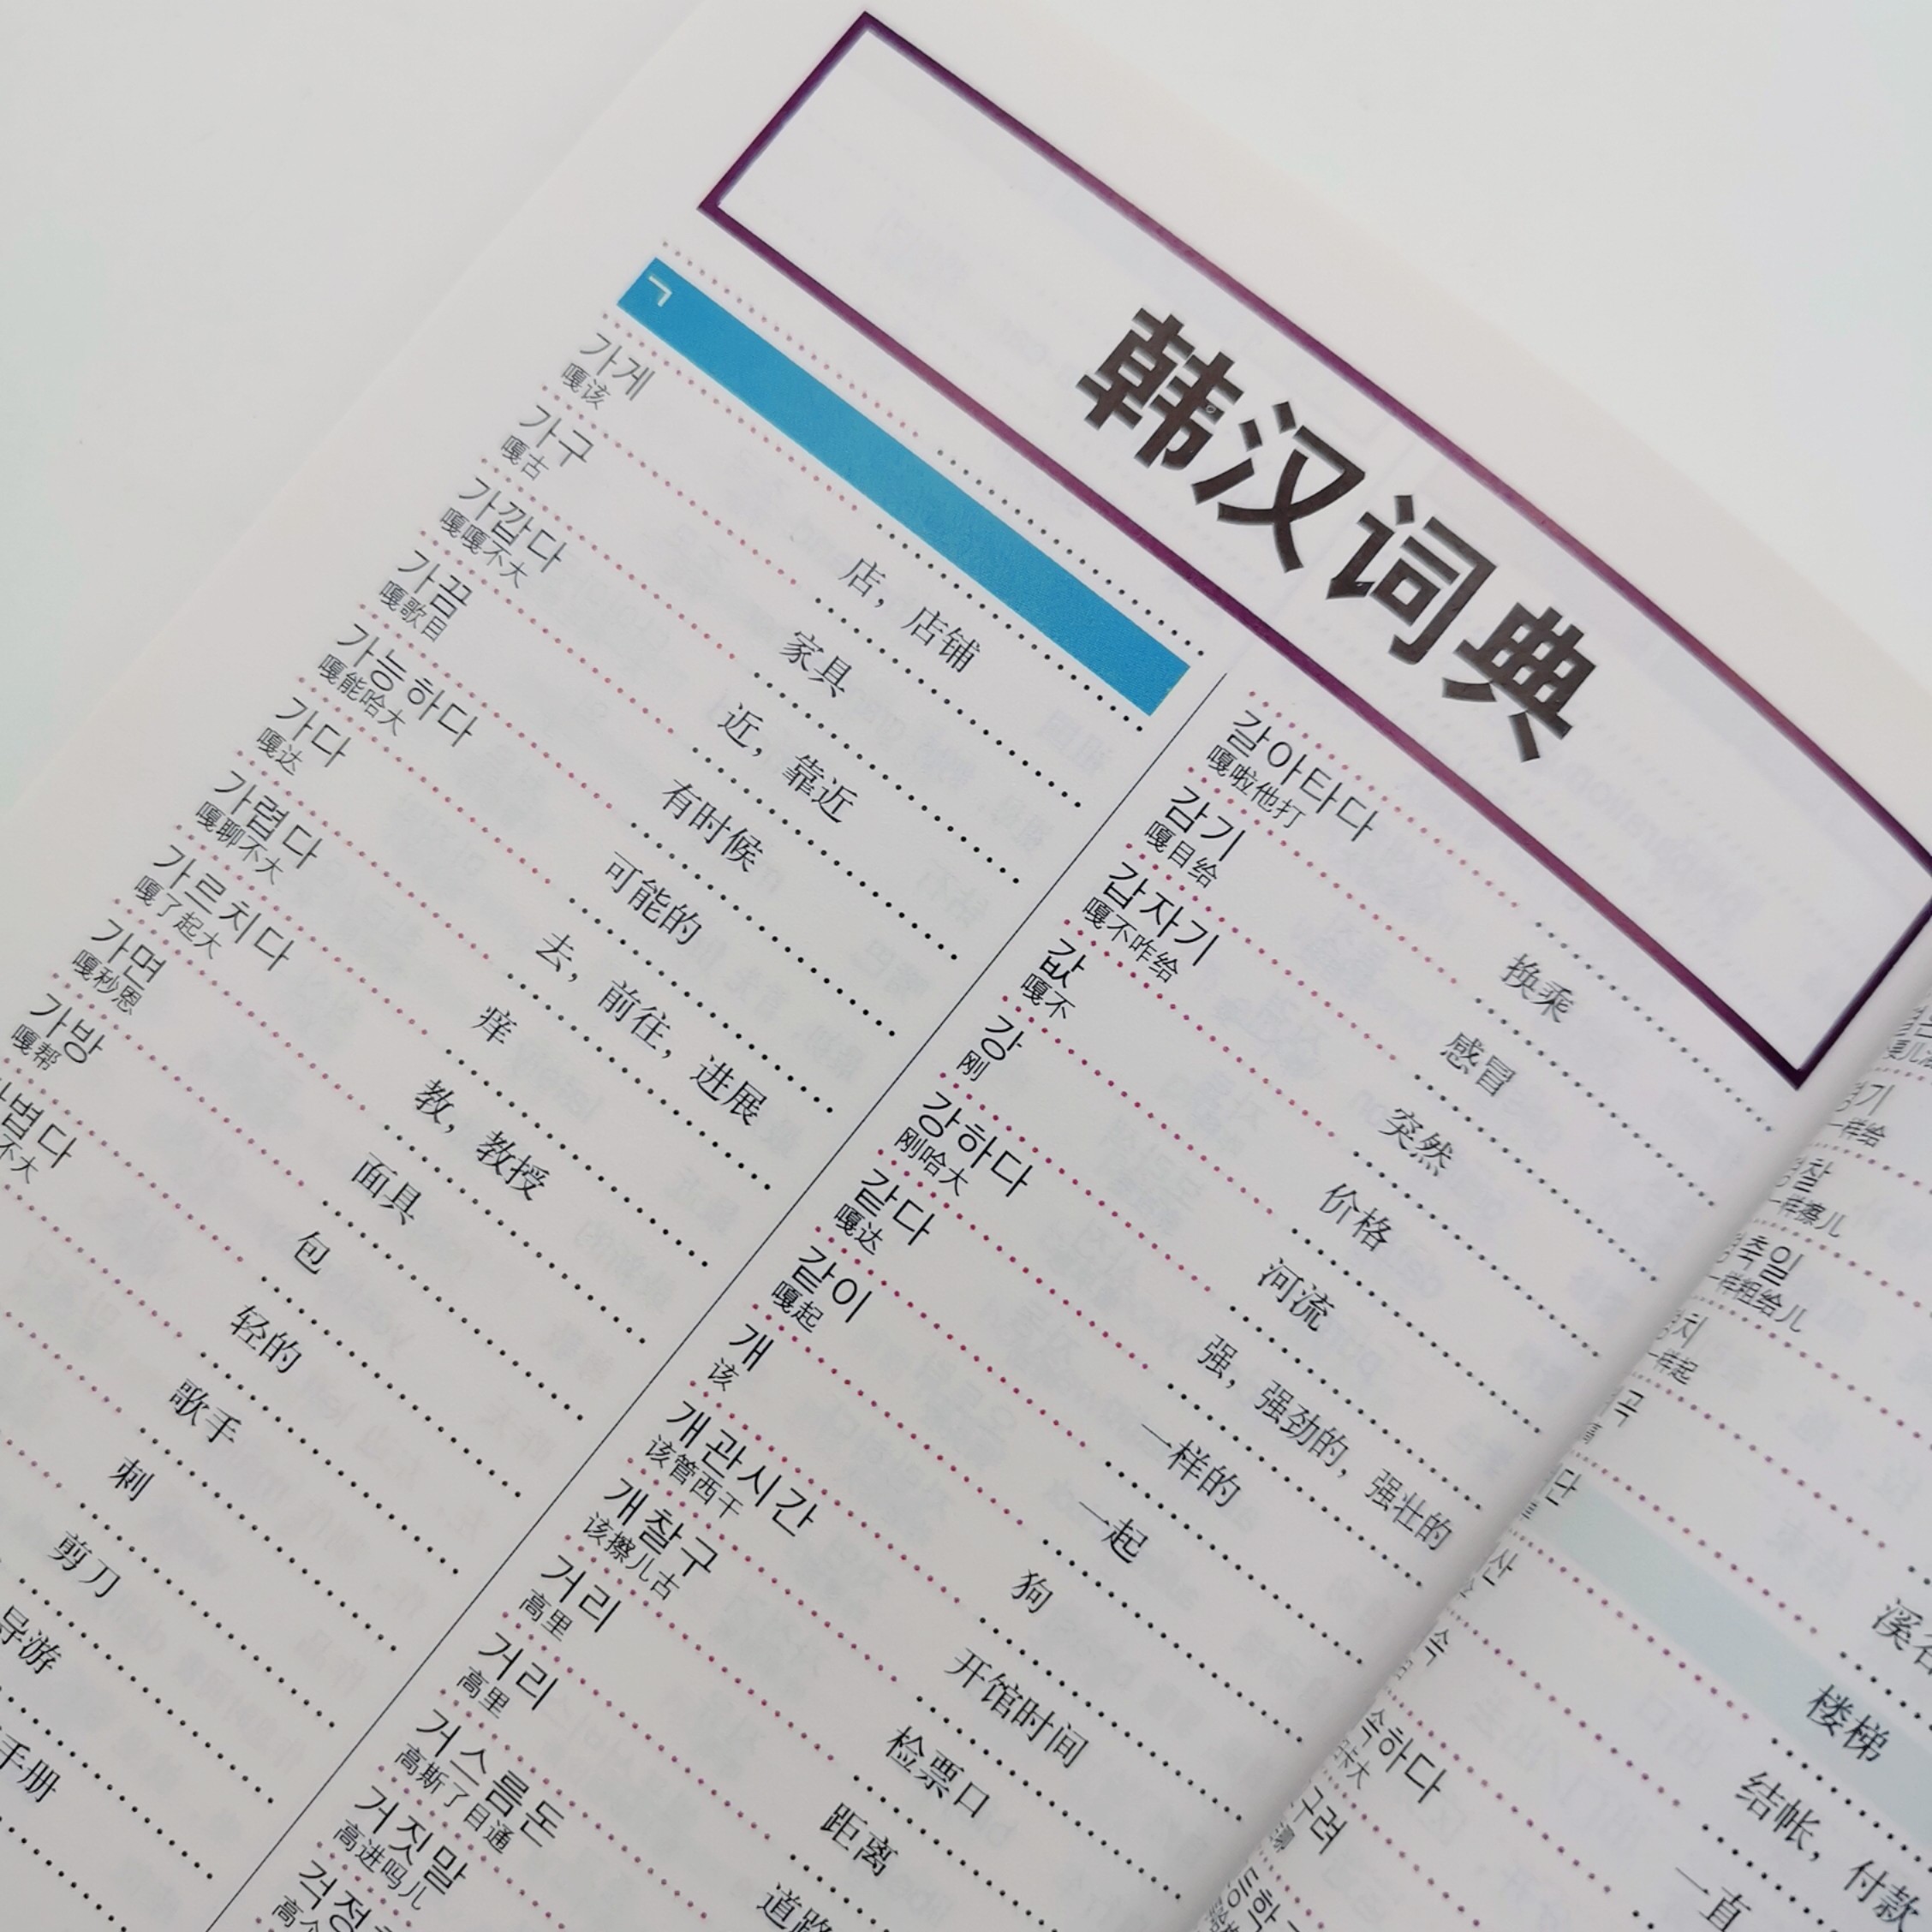 韩汉词典
ㄱ
가게
嘎该
店，店铺
가구
嘎古
家具
가깝다
嘎嘎不大
近，靠近
가끔
嘎歌目
有时候
가능하다
嘎能哈大
可能的
가다
嘎达
去，前往，进展
가렵다
嘎聊不大
痒
가르치다
嘎了起大
教，教授
가면
嘎秒恩
面具
가방
嘎帮
包
볍다
不大
轻的
歌手
刺
剪刀
导游
手册
갈아타다
嘎啦他打
换乘
감기
嘎目给
感冒
갑자기
嘎不咋给
突然
값
嘎不
价格
강
刚
河流
강하다
刚哈大
强，强劲的，强壮的
같다
嘎达
一样的
같이
嘎起
一起
개
该
狗
개관시간
该管西干
开馆时间
개찰구
该擦儿古
检票口
거리
高里
距离
거리
高里
道路
거스름돈
高斯了目通
거짓말
高进吗儿
걱정
溪谷
楼梯
结帐，付款
一直